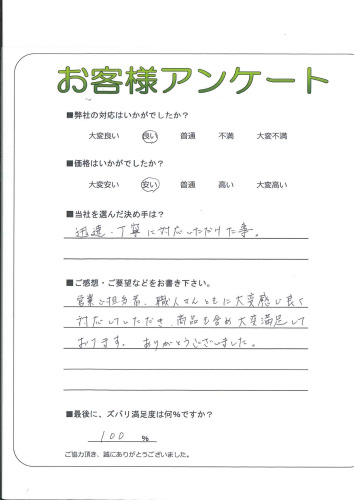 お客様アンケート
■弊社の対応はいかがでしたか?
大変良い 良い 普通 不満 大変不満
■価格はいかがでしたか?
大変安い 安い 普通 高い 大変高い
■当社を選んだ決め手は?
迅速、丁寧に対応しただけた事。
■ご感想・ご要望などをお書き下さい。
営業ご担当者、職人さんともに大変感じ良く
対応していただき、商品も含め大変満足して
おります。ありがとうございました。
■最後に、ズバリ満足度は何%ですか?
100 %
ご協力頂き、誠にありがとうございました。